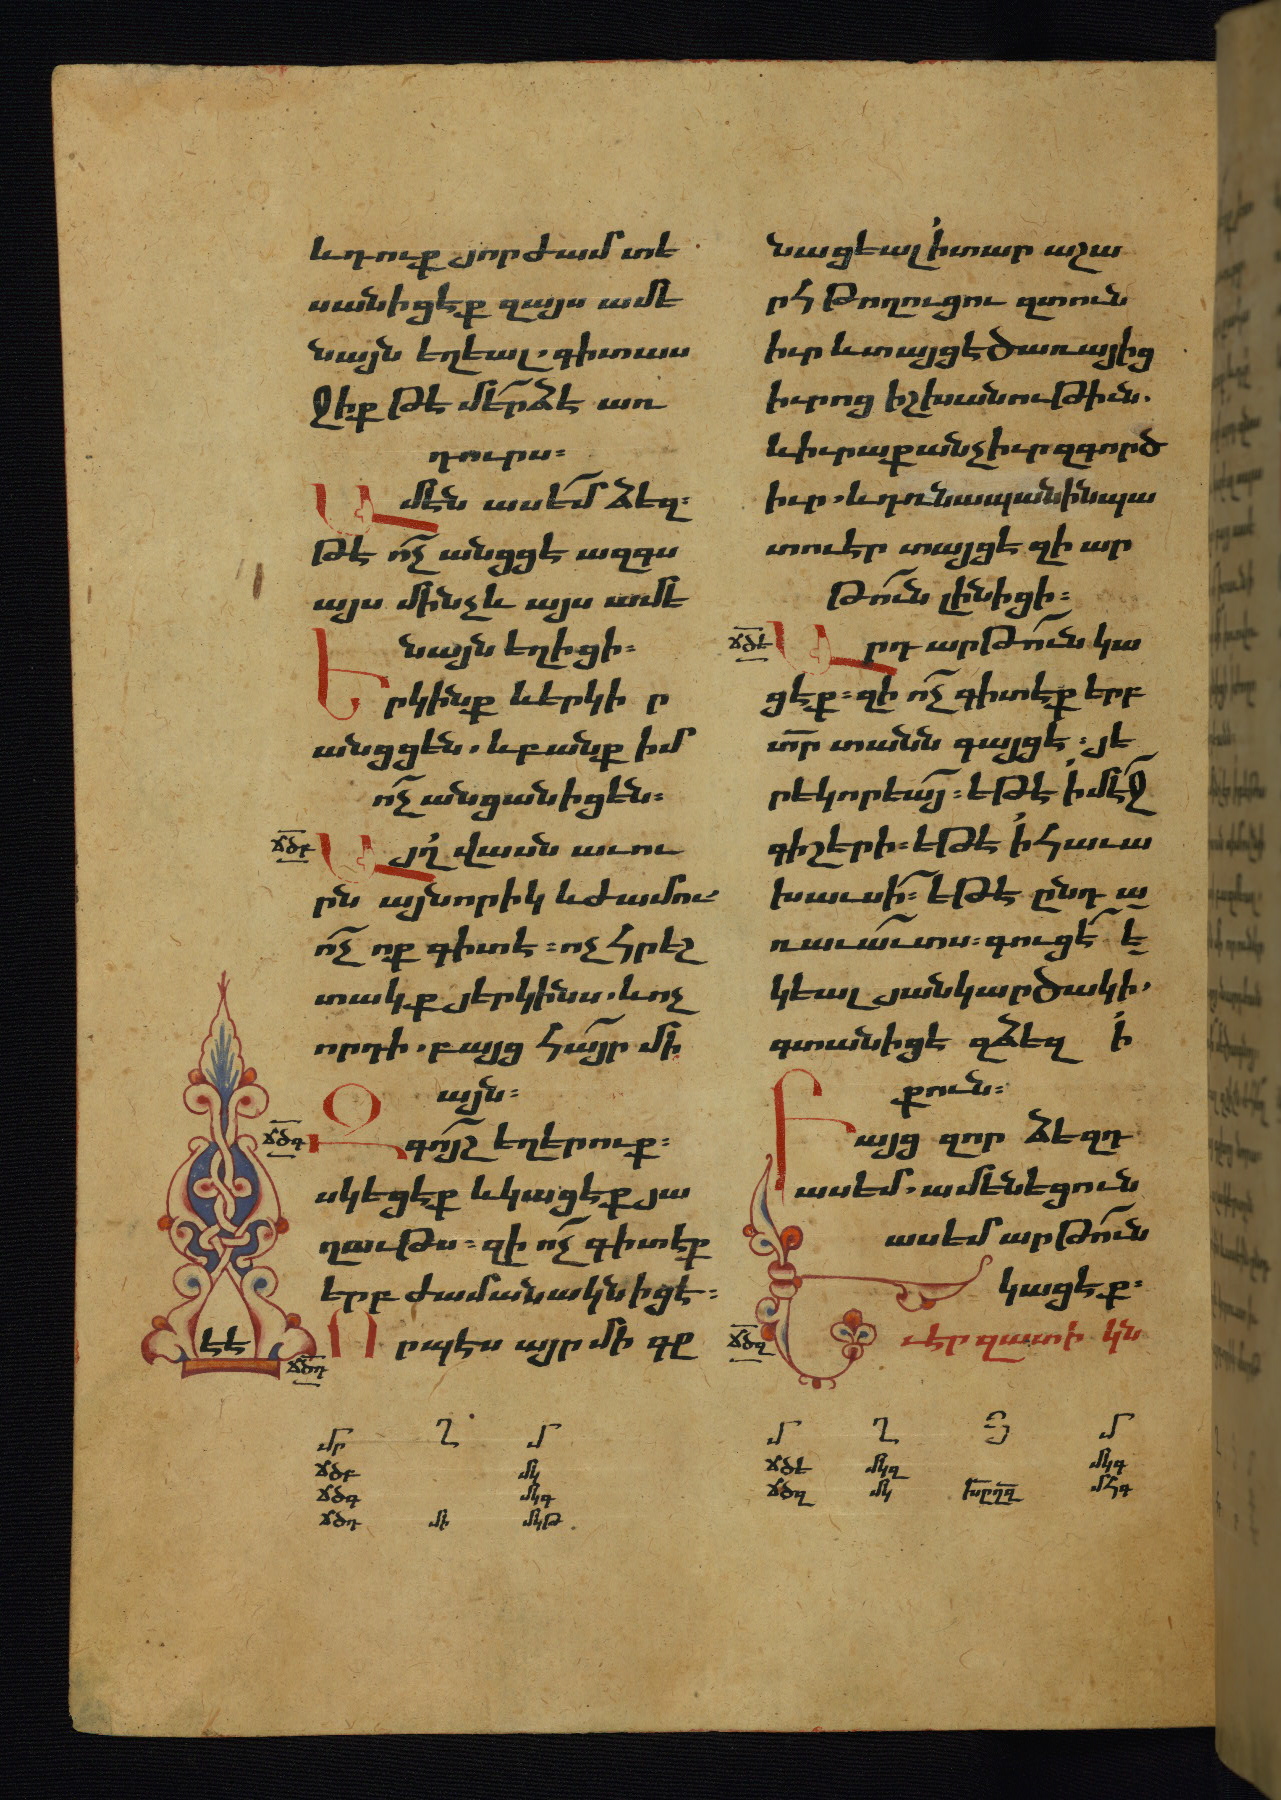 և դուք յորժամ տե
սանիցէք զայս ամե
նայն եղեալ. գիտաս
ջիք թէ մերձ է առ
դուրս։
Ամէն ասեմ ձեզ։
թէ ո՛չ անցցէ ազգս
այս մինչև այս ամե
նայն եղիցի։
Երկինք և երկիր
անցցեն. և բանք իմ
ո՛չ անցանիցեն։
ՃԾԲ Այլ վասն աւու
րն այնորիկ և ժամու
ո՛չ ոք գիտէ։ ոչ հրեշ
տակք յերկինս. և ոչ
որդի. բայց հայր մի
այն։
ՃԾԳ Զգոյշ եղերուք։
սկեցէք և կացէք յա
ղաւթս։ զի ո՛չ գիտէք
երբ ժամանակն իցէ։
ՃԾԴ Որպէս այր մի գը
նացեալ ի տար աշխա
րհ թողուցու զտուն
իւր և տայցէ ծառայից
իւրոց իշխանութիւն.
և իւրաքանչիւր զգործ
իւր. և դռնապանին պա
տուէր տայցէ զի ար
թուն լինիցի։
ՃԾԵ Արդ արթուն կա
ցէք։ զի ո՛չ գիտէք երբ
տր տանն գայցէ։ յե
րեկորեայ։ եթէ ի մէջ
գիշերի։ եթէ ի հաւա
խաւսի։ եթէ ընդ ա
ռաւաւտս։ գուցէ ե
կեալ յանկարծակի.
գտանիցէ զձեզ ի
քուն։
Բայց զոր ձեզդ
ասեմ. ամենեցուն
ասեմ արթուն
կացէք։
ՃԾԶ Եւ էր զատիկն
ԷԷ
մր ղ մ
ՃԾԲ մկ
ՃԾԳ մկգ
ՃԾԴ մի մկթ
մ ղ յ մ
ՃԾԵ մկզ մկգ
ՃԾԶ մկ մՀգ